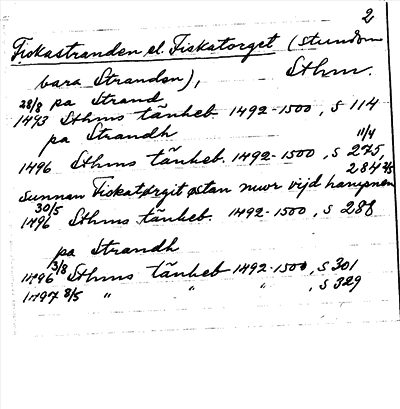 2
Fiskastranden el. Fiskatorget (stundom
bara Stranden), Sthm.
28/8 pa Strand
1493 Sthms tänkeb. 1492-1500, s 114
pa Strandh 11/4
1496 Sthms tänkeb. 1492-1500, s 275,
284 2/5
sunnan Fiskatorgit østan mwr vijd hampnen
30/5
1496 Sthms tänkeb. 1492-1500, s 288
pa Strandh
1496 3/8 Sthms tänkeb 1492-1500, s 301
1497 8/5 " " " , s 329